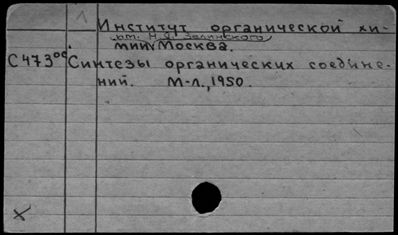 Институт органической хи-
им. Н.Д. Зелинского
мии, Москва.
С473ос Синтезы органических соедине-
ний. М-Л., 1950.